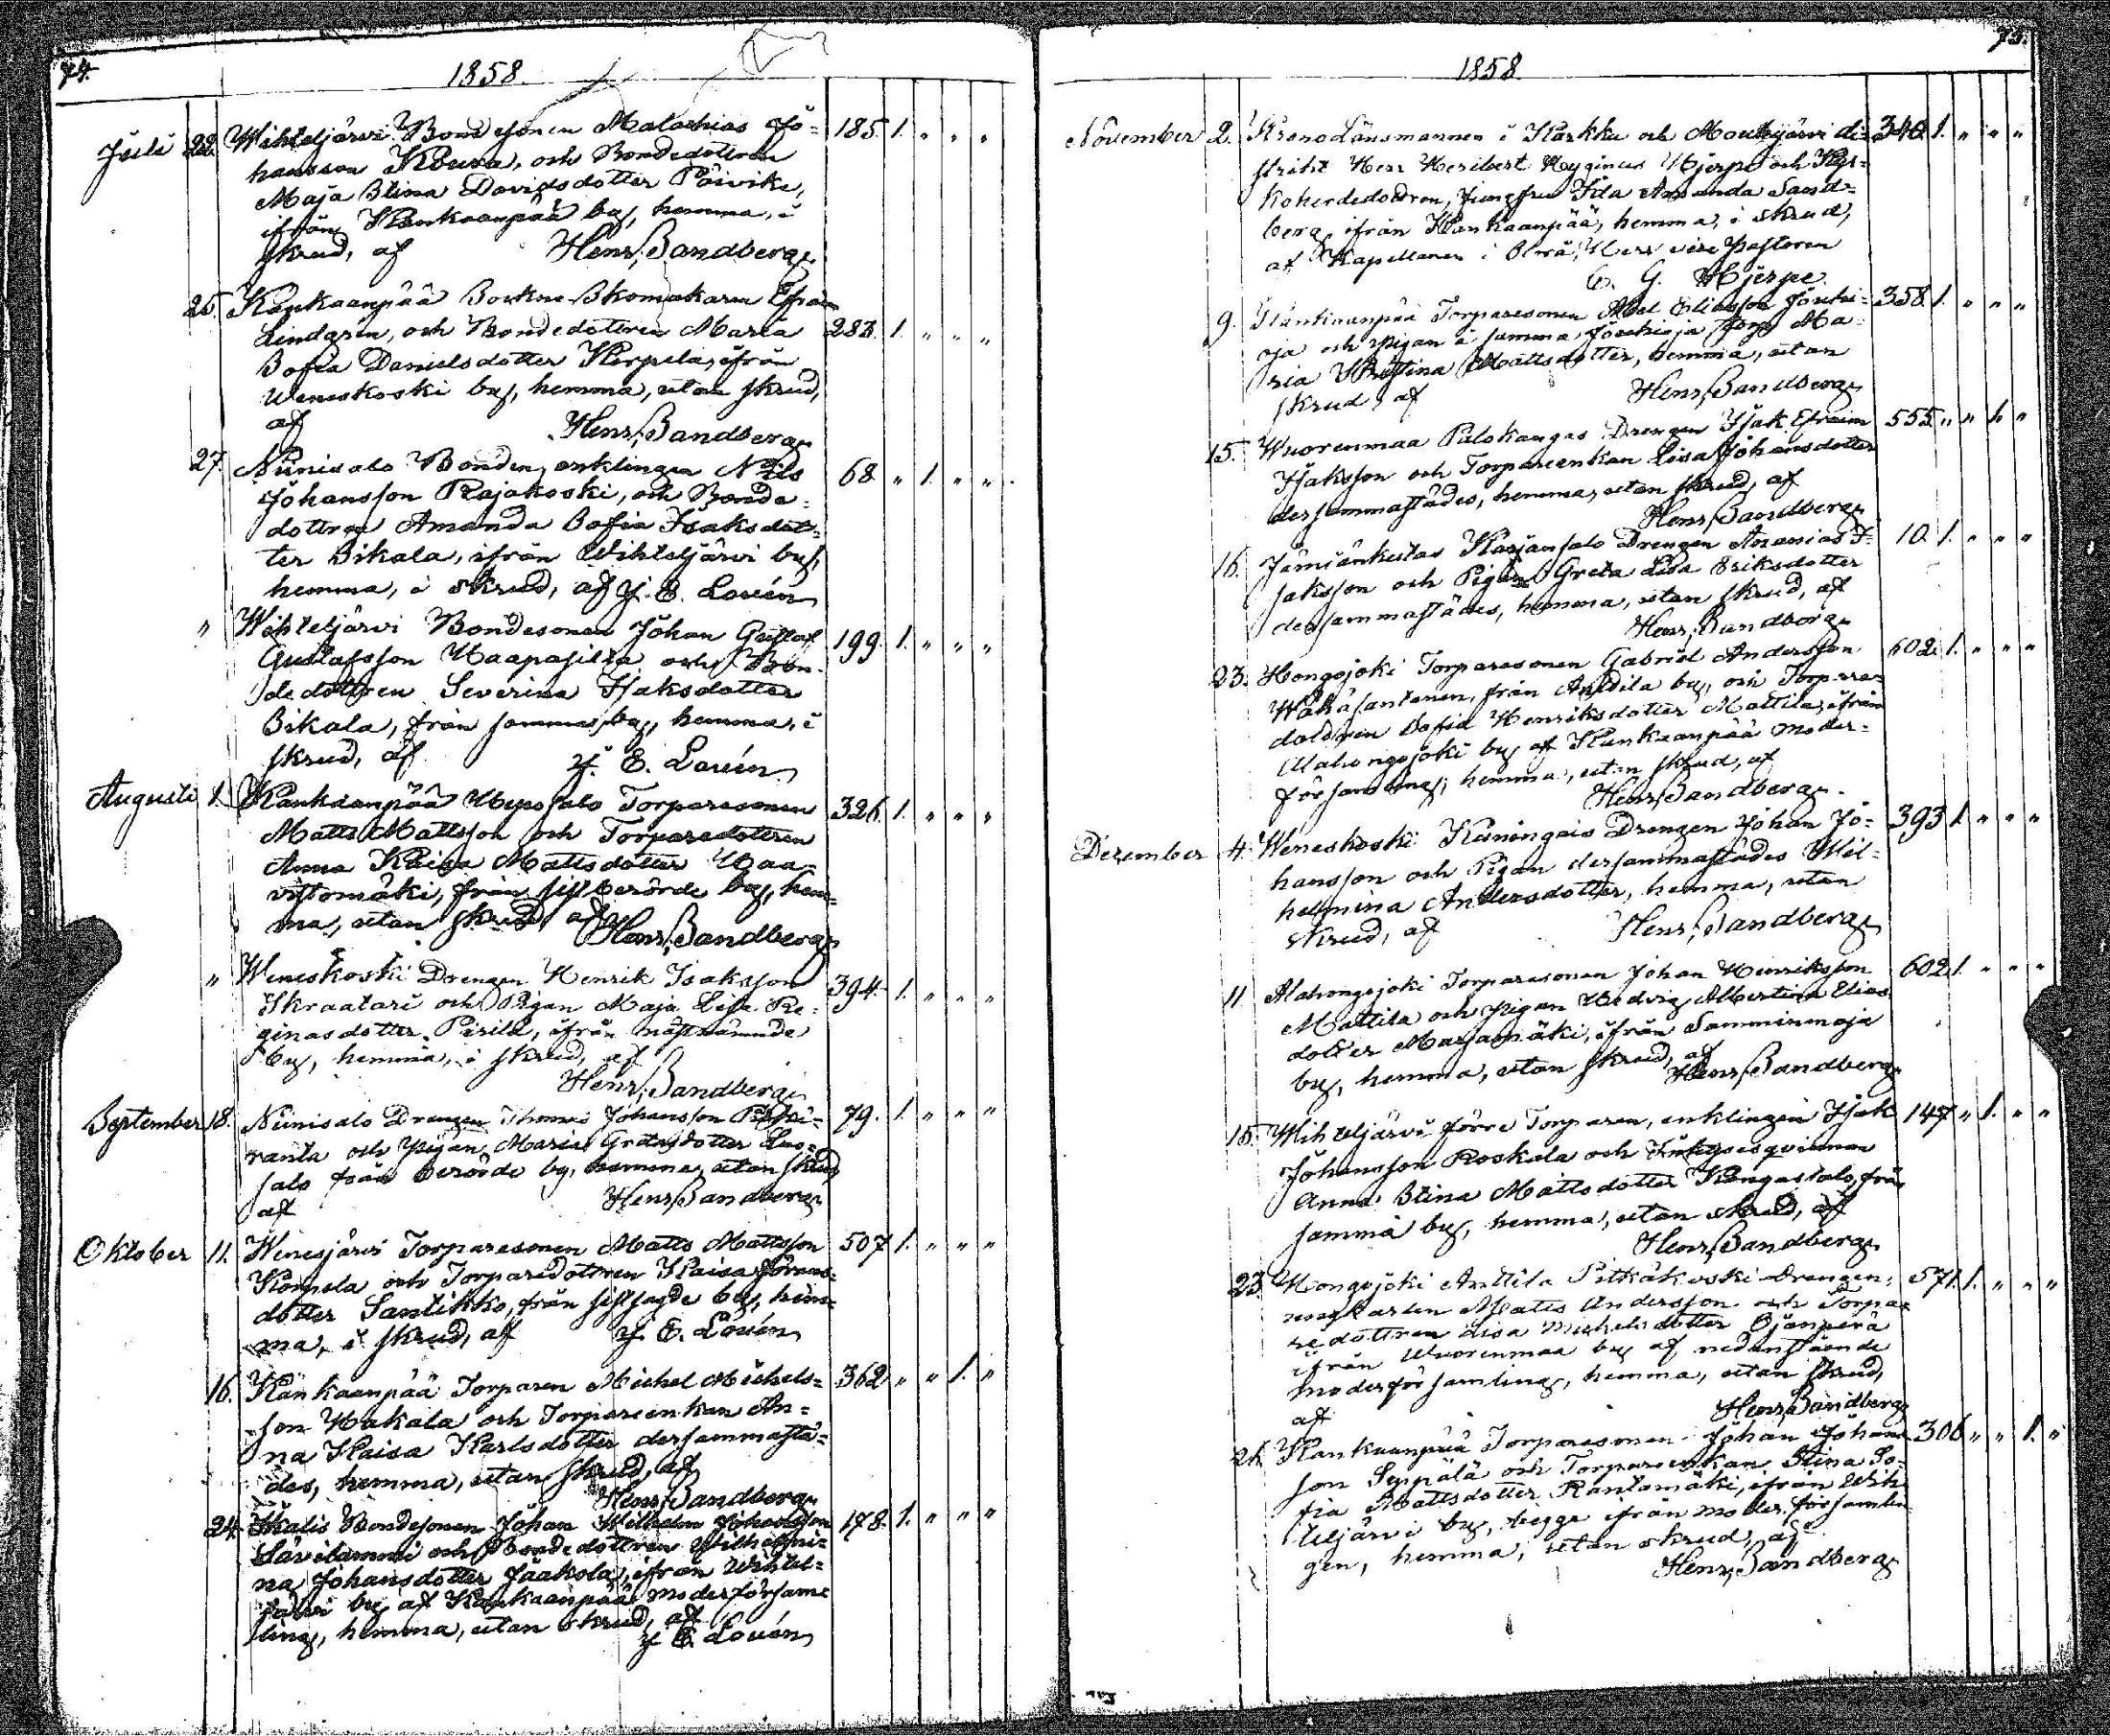 74.
1858.
Juli 22. Wihteljärvi Bondesonen Malachias Jo= 185. 1. " " "
hansson Koura, och Bondedottren
Maja Stina Davidsdotter Päivike,
ifrån Kankaanpää by, hemma, i
skrud, af Henr. Sandberg
25. Kankaanpää Sockne Skomakaren Efraim
Lindgren, och Bondedottren Maria 283. 1. " " "
Sofia Danielsdotter Korpela, ifrån
Weneskoski by, hemma, utan skrud,
af Henr. Sandberg
27. Niinisalo Bonden, enklingen Nils 68 " 1. " "
Johansson Rajakoski, och Bonde=
dottren Amanda Sofia Isaksdot=
ter Sikala, ifrån Wihteljärvi by,
hemma, i skrud, af J. E. Lovén
" Wihteljärvi Bondesonen Johan Gustaf 199. 1. " " "
Gustafsson Haapasilta och Bon=
dedottren Severina Isaksdotter
Sikala, från samma by, hemma, i
skrud, af J. E. Lovén
Augusti 1. Kankaanpää Heposalo Torparesonen 326. 1. " " "
Matts Mattsson och Torparedottren
Anna Kaisa Mattsdotter Waa=
vistomäki, från sistberörde by, hem=
ma, utan skrud af
Henr. Sandberg
" Weneskoski Drengen Henrik Isaksson 394. 1. " " "
Skraatari och Pigan Maja Lisa Re=
ginasdotter Perilä, ifrån nästnämnde
by, hemma, i skrud, af
Henr. Sandberg
September 18. Niinisalo Drengen Thomas Johansson 79. 1. " " "
ranta och Pigan Maria Gretasdotter Luo=
salo från berörde by, hemma, utan skrud
af Henr. Sandberg
Oktober 11. Wenesjärvi Torparesonen Matts Mattsson 507 1. " " "
Korpela och Torparedottren Kaisa
dotter Santikko, från sistsagde by, hem=
ma, i skrud, af J. E. Lovén
16. Kankaanpää Torparen Michel Michels= 362 " " 1. "
son Hakala och Torpareenkan An=
na Kaisa Karlsdotter dersammastä=
des, hemma, utan skrud, af
Henr. Sandberg
24. Ikalis Bondesonen Johan Wilhelm Johansson 178. 1. " " "
Särilammi och Bondedottren Wilhelmi=
na Johansdotter Jaakola, ifrån Wihtel=
järvi by af Kankaanpää moderförsam=
ling, hemma, utan skrud, af
J. E. Lovén
75.
1858
November 2. Kronolänsmannen i Karkku och Mouhijärvi di= 340. 1. " " "
strikt Herr Heribert Hyginus Hjerpe och Kyr=
koherdedottren, Jungfru Ida Amanda Sand=
berg, ifrån Kankaanpää, hemma, i skrud,
af Kapellanen i Herr vice Pastoren
C. G. Hjerpe
9. Kankaanpää Torparesonen Abel Eliasson Jouhi= 358. 1. " " "
oja och Pigan å samma Jouhioja torp Ma=
ria Kristina Mattsdotter, hemma, utan
skrud, af Henr. Sandberg
15. Wuorenmaa Palokangas Drengen Isak Efraim 555. " " 1. "
Isaksson och Torpareenkan Lisa Johansdotter
dersammastädes, hemma, utan skrud, af
Henr. Sandberg
16. Jämiänkeitas Karjansalo Drengen Ananias I= 10. 1. " " "
saksson och Pigan Greta Lisa Eriksdotter
dersammastädes, hemma, utan skrud, af
Henr. Sandberg
23. Hongojoki Torparesonen Gabriel Andersson 602. 1. " " "
Wähäsantanen, från Anttila by, och Torpare=
dottren Sofia Henriksdotter Mattila, ifrån
Alahongojoki by af Kankaanpää moder=
församling, hemma, utan skrud, af
Henr. Sandberg
Dezember 4. Weneskoski Kuningais Drengen Johan Jo= 393 1. " " "
hansson och Pigan dersammastädes Wil=
helmina Andersdotter, hemma, utan
skrud, af Henr. Sandberg
11. Alahongojoki Torparesonen Johan Henriksson 602. 1. " " "
Mattila och Pigan Hedvig Albertina Elias
dotter Marjamäki, ifrån Samminmaja
by, hemma, utan skrud, af
Henr. Sandberg
15. Wihteljärvi förre Torparen, enklingen Isak 147 " 1. " "
Johansson Roskala och Inhysesqvinnan
Anna Stina Mattsdotter Kangassalo, från
samma by, hemma, utan skrud, af
Henr. Sandberg
23. Hongojoki Anttila Pitkäkoski Drengen, 571. 1. " " "
ungkarlen Matts Andersson och Torpa=
redottren Lisa Michelsdotter Ojanperä
ifrån Wuorenmaa by af nedanstående
moderförsamling, hemma, utan skrud,
af Henr. Sandberg
26. Kankaanpää Torparesonen Johan Johans 306 " " 1. "
son Seppälä och Torpareenkan Stina So=
fia Mattsdotter Rantamäki, ifrån Wih
teljärvi by, begge ifrån moderförsamlin
gen, hemma, utan skrud, af
Henr. Sandberg